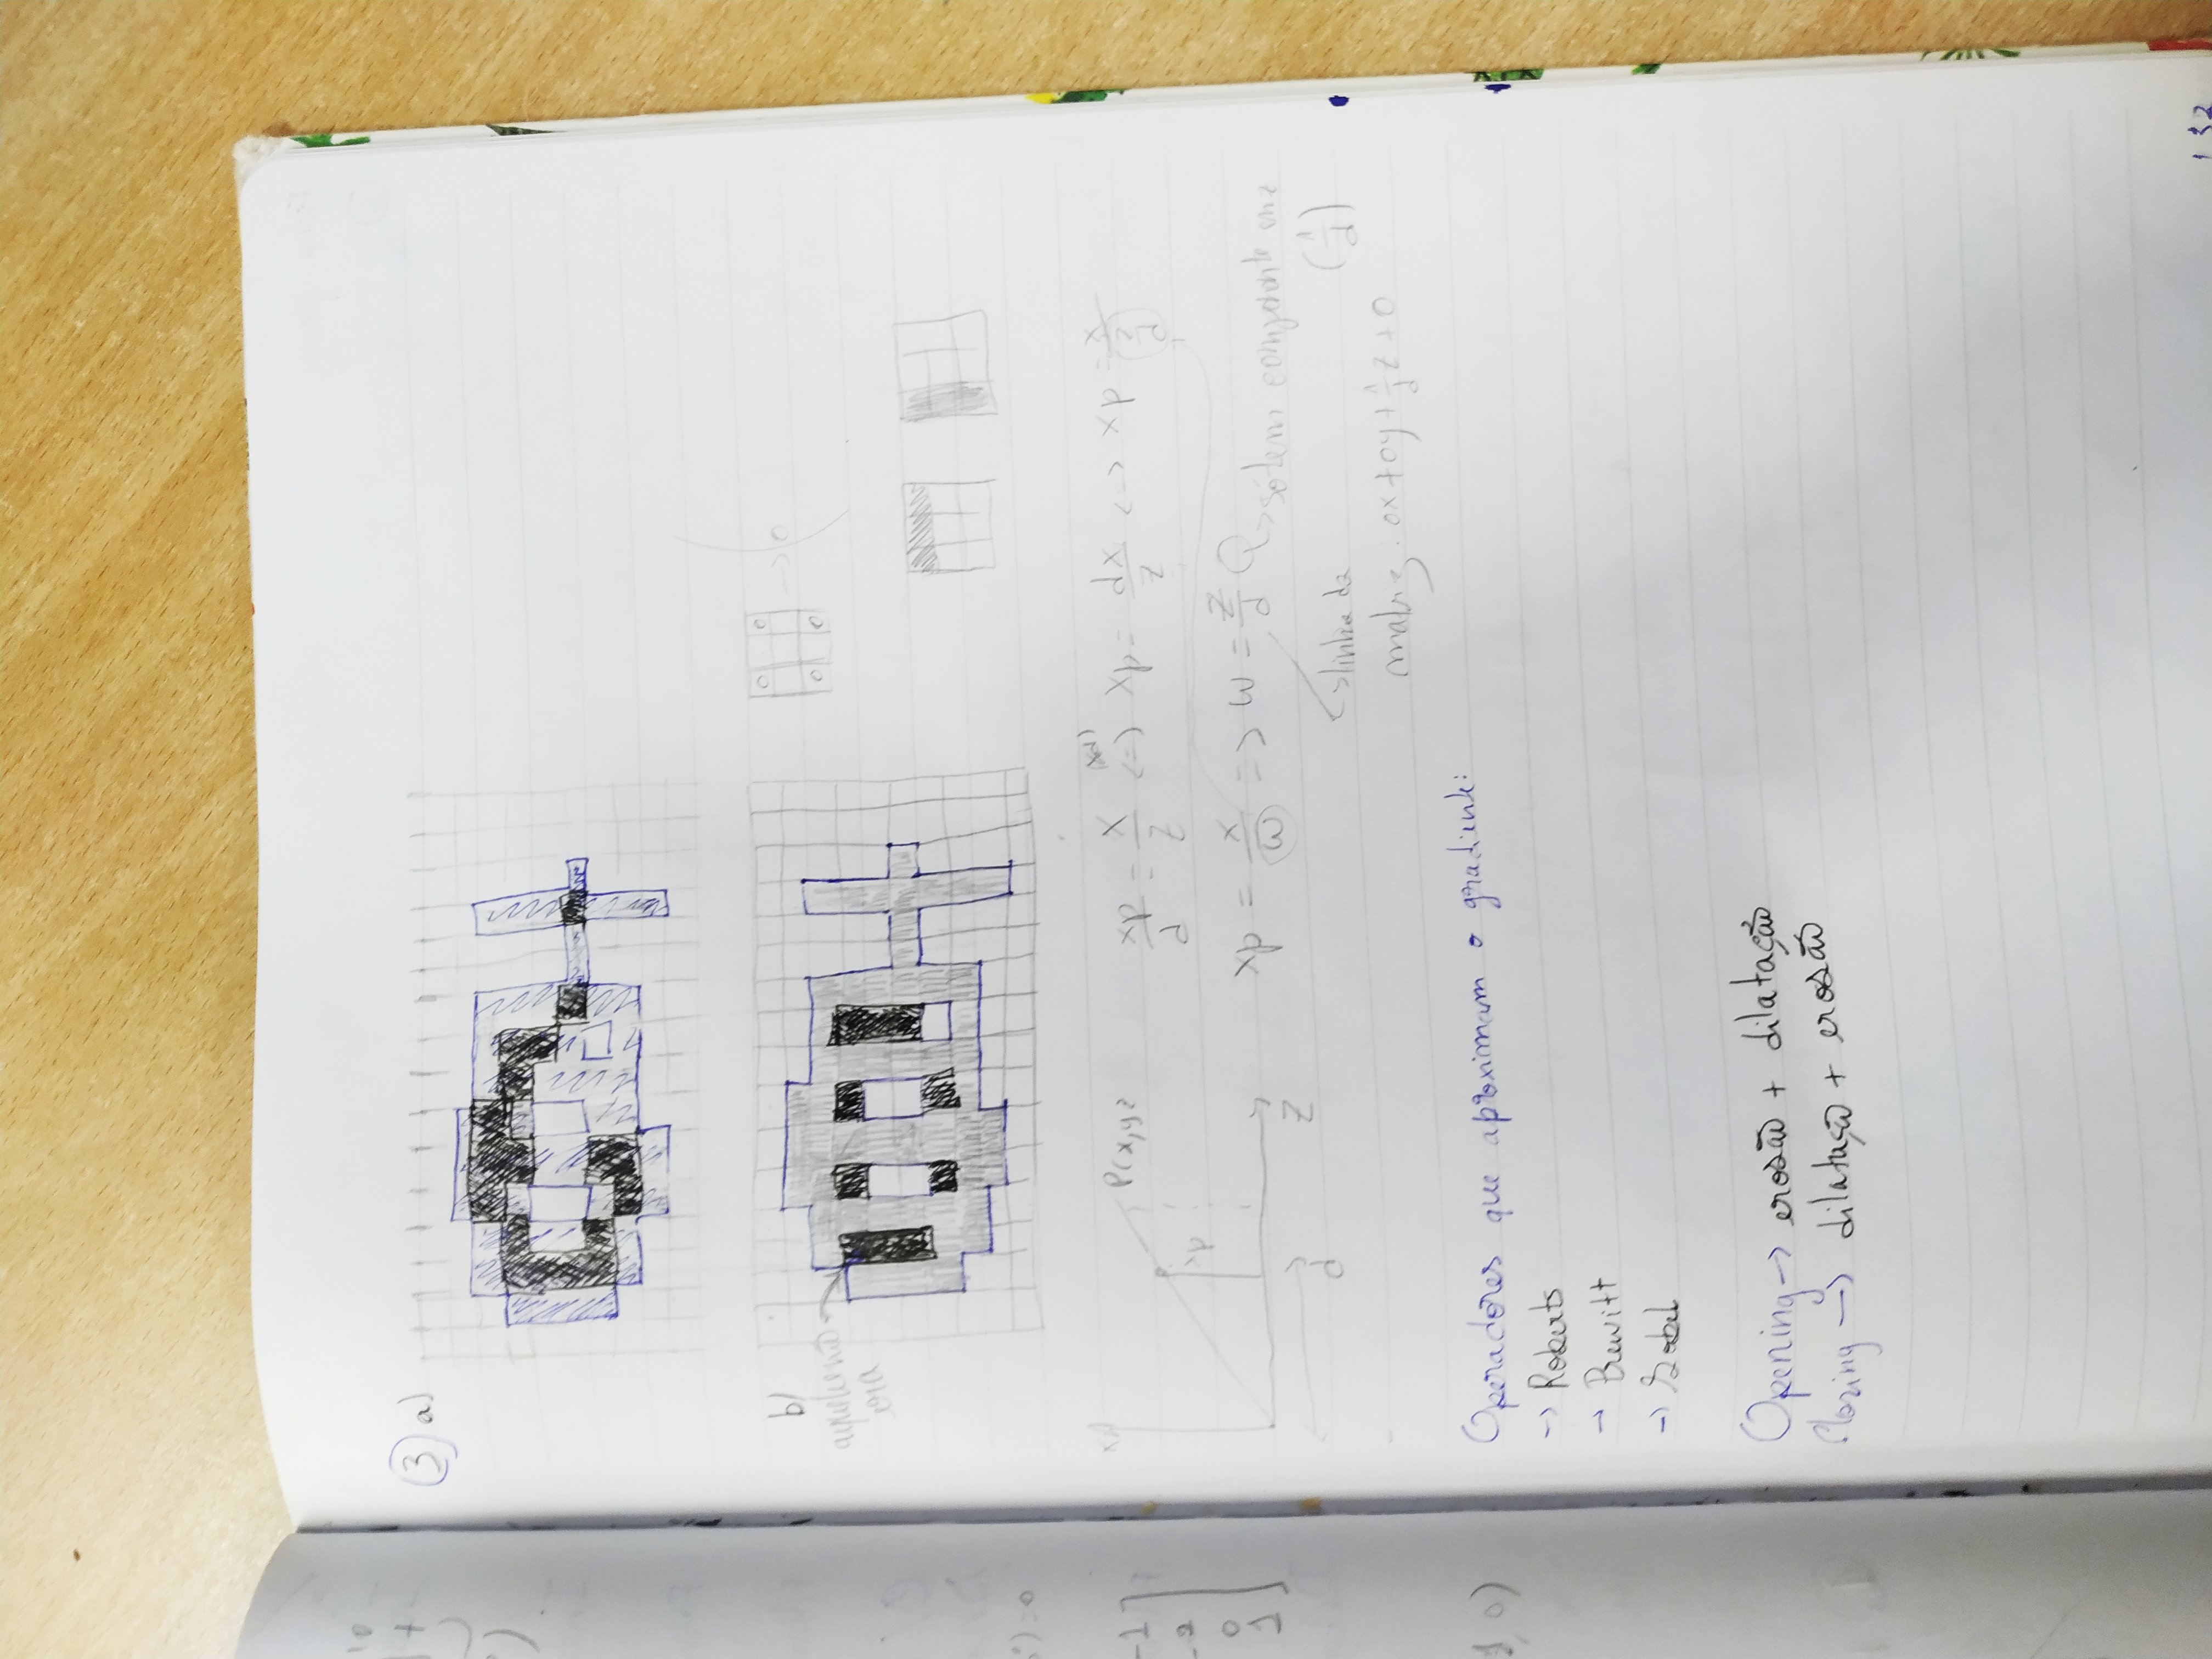 3 a)
b)
aqui não
era
0 0
→ 0
0 0
x
P(x,y,z
xp
d
z
xp/d = x/z (xd) <=> xp = dx/z <-> xp = x/(z/d)
xp = x/w => w = z/d → só tem componente em z
(1/d)
↳ linha da
matriz: 0x+0y+1/d z+0
Operadores que aproximam o gradiente:
→ Roberts
→ Prewitt
→ Sobel
Opening → erosão + dilatação
Closing → dilatação + erosão
-1
0
1
132